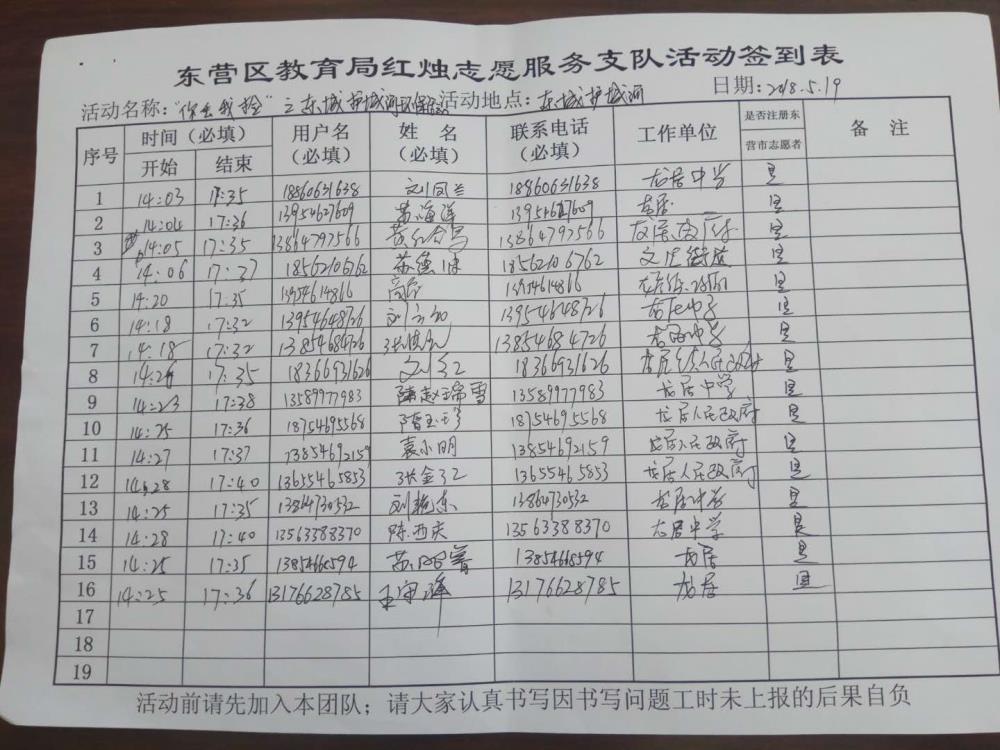 东营区教育局红烛志愿服务支队活动签到表
日期：2018.5.19
活动名称：“你丢我捡”之东城护城河环保 活动地点：东城护城河
序号 时间（必填） 用户名（必填） 姓名（必填） 联系电话（必填） 工作单位 是否注册东营市志愿者 备注
开始 结束
1 14:03 17:35 18860631638 刘凤兰 18860631638 龙居中学 是
2 14:04 17:36 13954627609 苏海洋 13954627609 龙居 是
3 14:05 17:35 13864797566 13864797566 是
4 14:06 17:37 18562106762 苏德 18562106762 文汇街道 是
5 14:20 17:35 13954614866 13954614866 是
6 14:18 17:32 13954648726 刘 13954648726 龙居中学 是
7 14:18 17:32 13854684726 张 13854684726 龙居中学 是
8 14:26 17:35 18366931626 刘红 18366931626 龙居 人民政府 是
9 14:23 17:38 13589977983 赵瑞雪 13589977983 龙居中学 是
10 14:25 17:36 18754695568 18754695568 龙居人民政府 是
11 14:27 17:37 13854692159 袁小明 13854692159 龙居人民政府 是
12 14:28 17:40 13655465853 张金红 13655465853 龙居人民政府 是
13 14:25 17:35 13864730532 刘艳东 13864730532 龙居中学 是
14 14:28 17:40 13563388370 陈西庆 13563388370 龙居中学 是
15 14:25 17:35 苏 龙居 是
16 14:25 17:36 13176628785 王守洋 13176628785 龙居 是
17
18
19
活动前请先加入本团队；请大家认真书写因书写问题工时未上报的后果自负